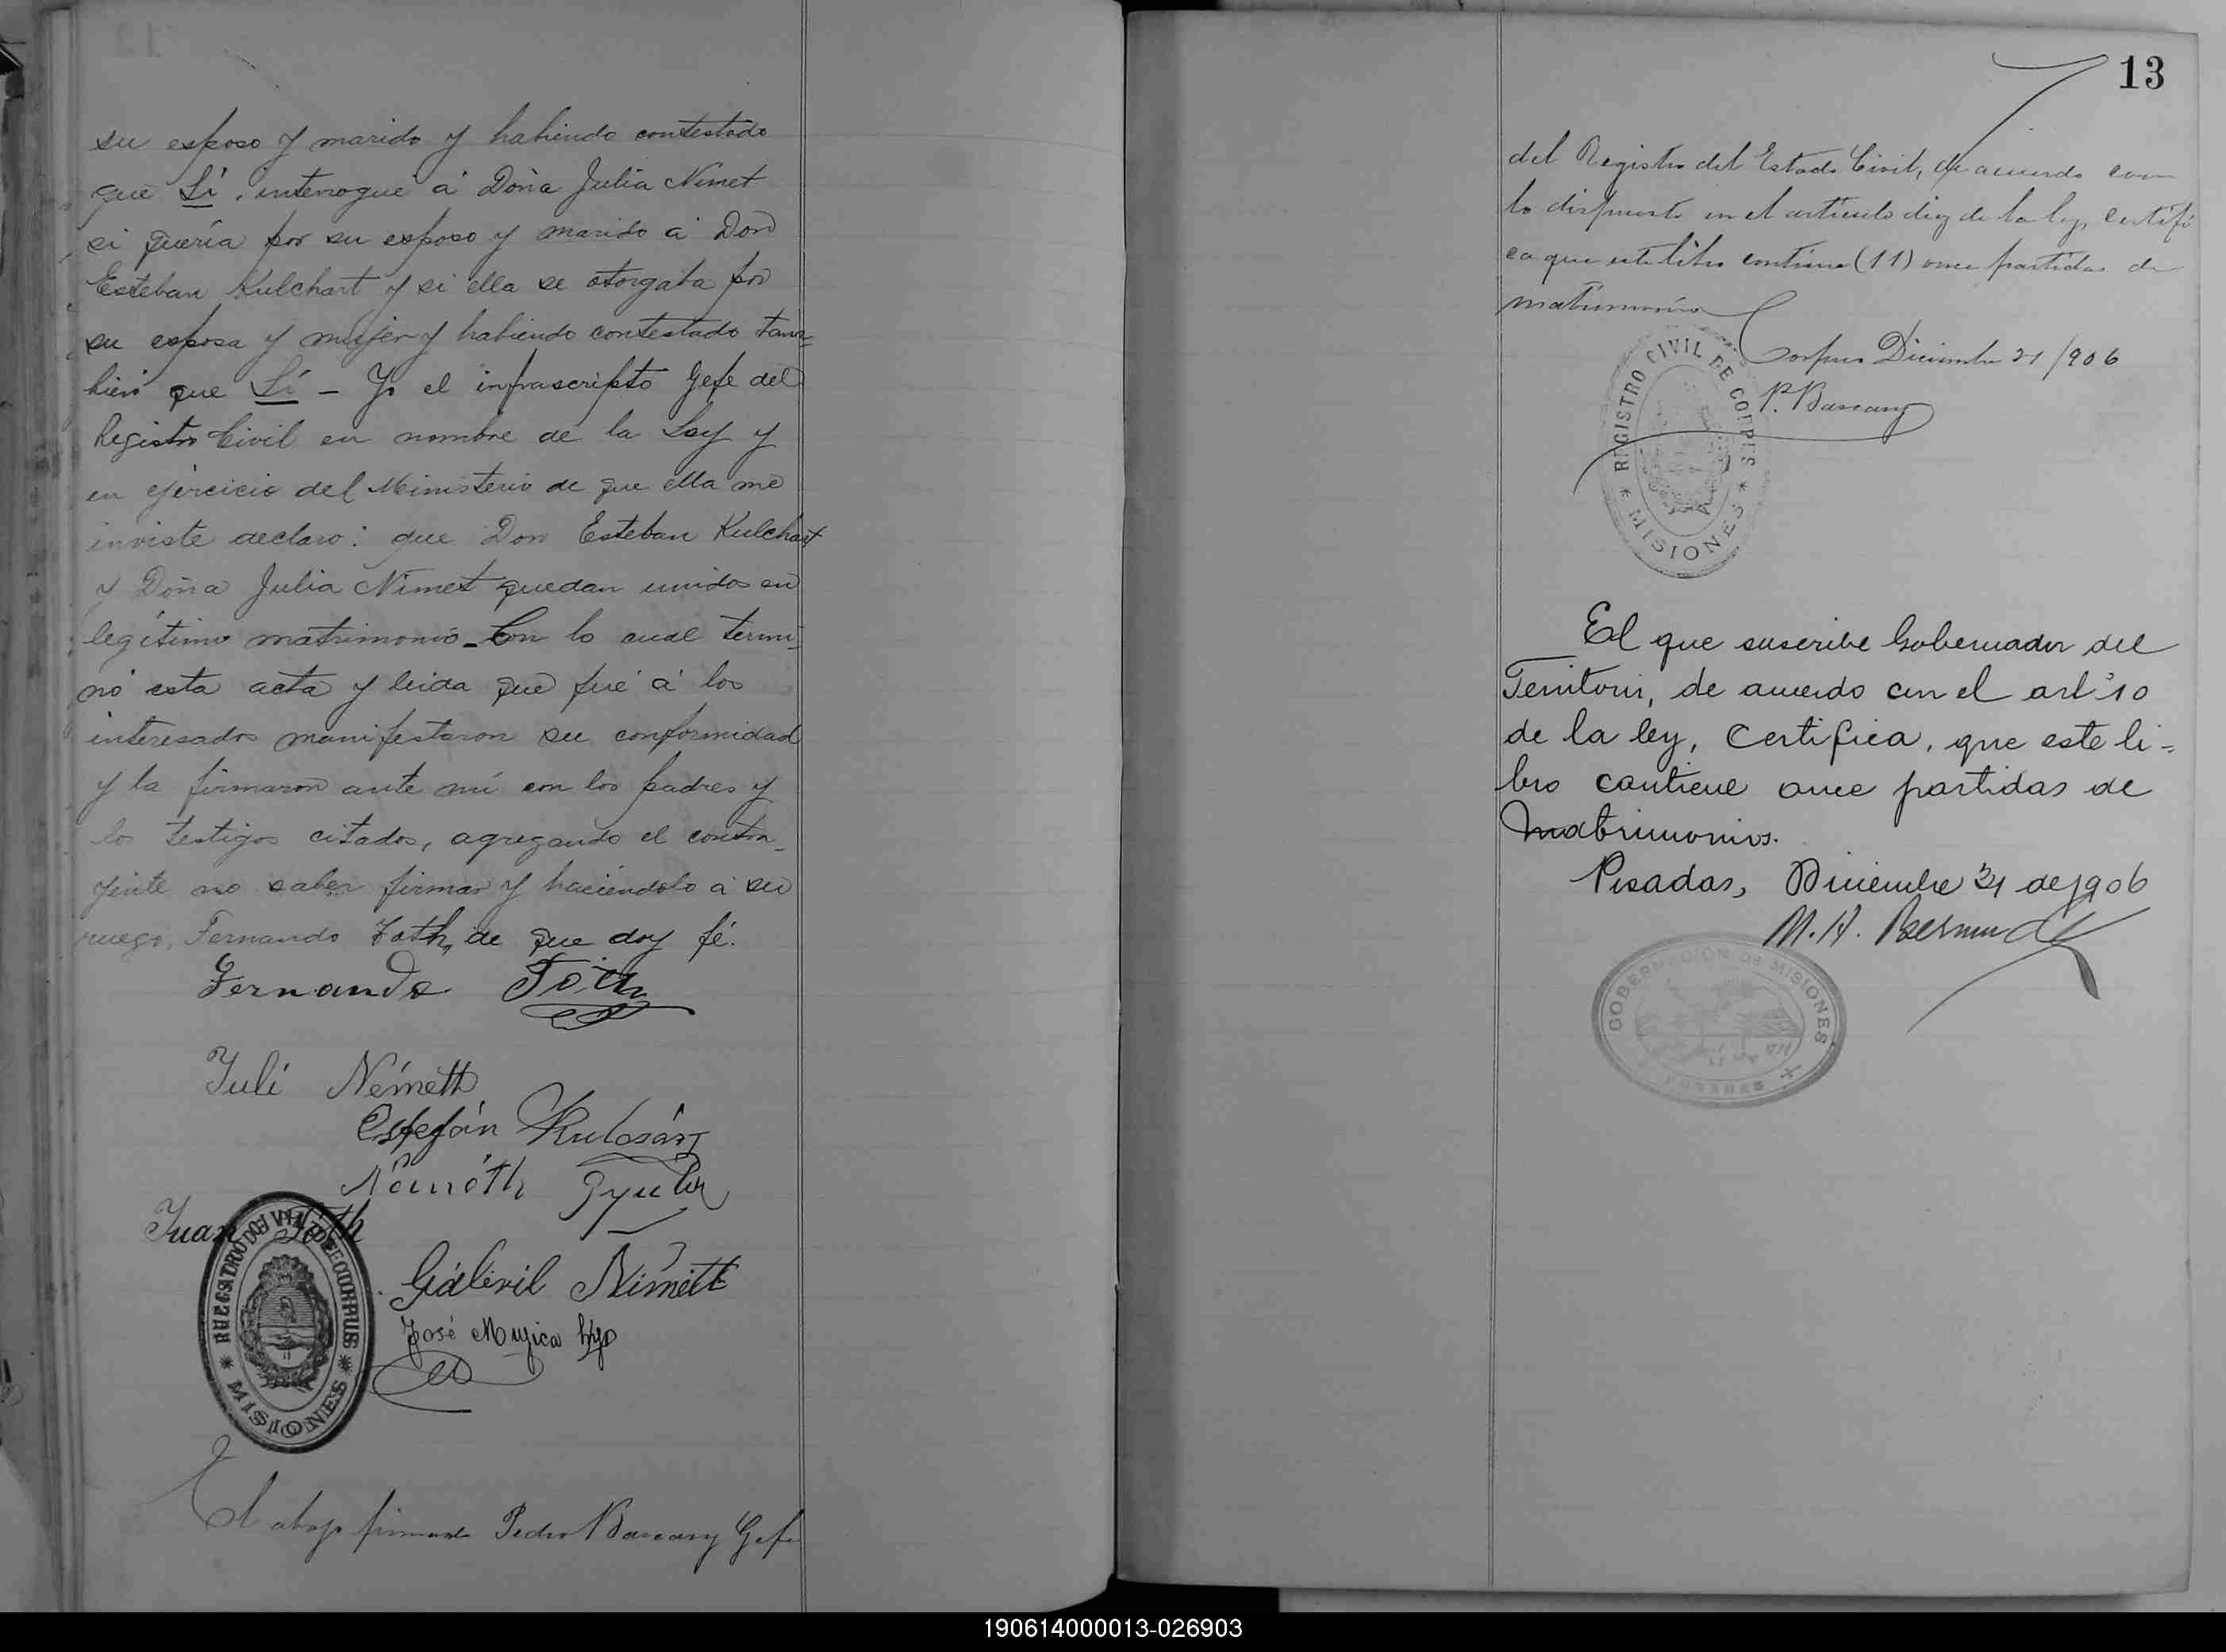 su esposo y marido y habiendo contestado
que Sí, interrogué á Doña Julia Nimet
si quería por su esposo y marido á Don
Esteban Kulchart y si ella se otorgaba por
su esposa y mujer y habiendo contestado tam-
bién que Sí - Yo el infrascripto Gefe del
Registro Civil en nombre de la Ley y
en ejercicio del Ministerio de que ella me
inviste declaro: que Don Esteban Kulchart
y Doña Julia Nimet quedan unidos en
legítimo matrimonio - Con lo cual termi-
nó esta acta y leida que fué á los
interesados manifestaron su conformidad
y la firmaron ante mí con los padres y
los testigos citados, agregando el contra-
yente no saber firmar y haciéndolo á su
ruego, Fernando Toth, de que doy fé.
Fernando Toth
Juli Németh
Németh Gyula
Juan Toth
Nimeth
José Mujica hijo
MISIONES
El abajo firmado Pedro Bareany Gefe
13
del Registro del Estado Civil, de acuerdo con
lo dispuesto en el artículo diez de la ley, certifi
ca que este libro contiene (11) once partidas de
matrimonio
Corpus Diciembre 31/906
P. Bareany
REGISTRO CIVIL DE CORPUS
MISIONES
El que suscribe Gobernador del
Territorio, de acuerdo con el art. 10
de la ley, Certifica, que este li-
bro contiene once partidas de
Matrimonios.
Posadas, Diciembre 31 de 1906
M. A. Bermudez
GOBERNACIÓN DE MISIONES
POSADAS
190614000013-026903